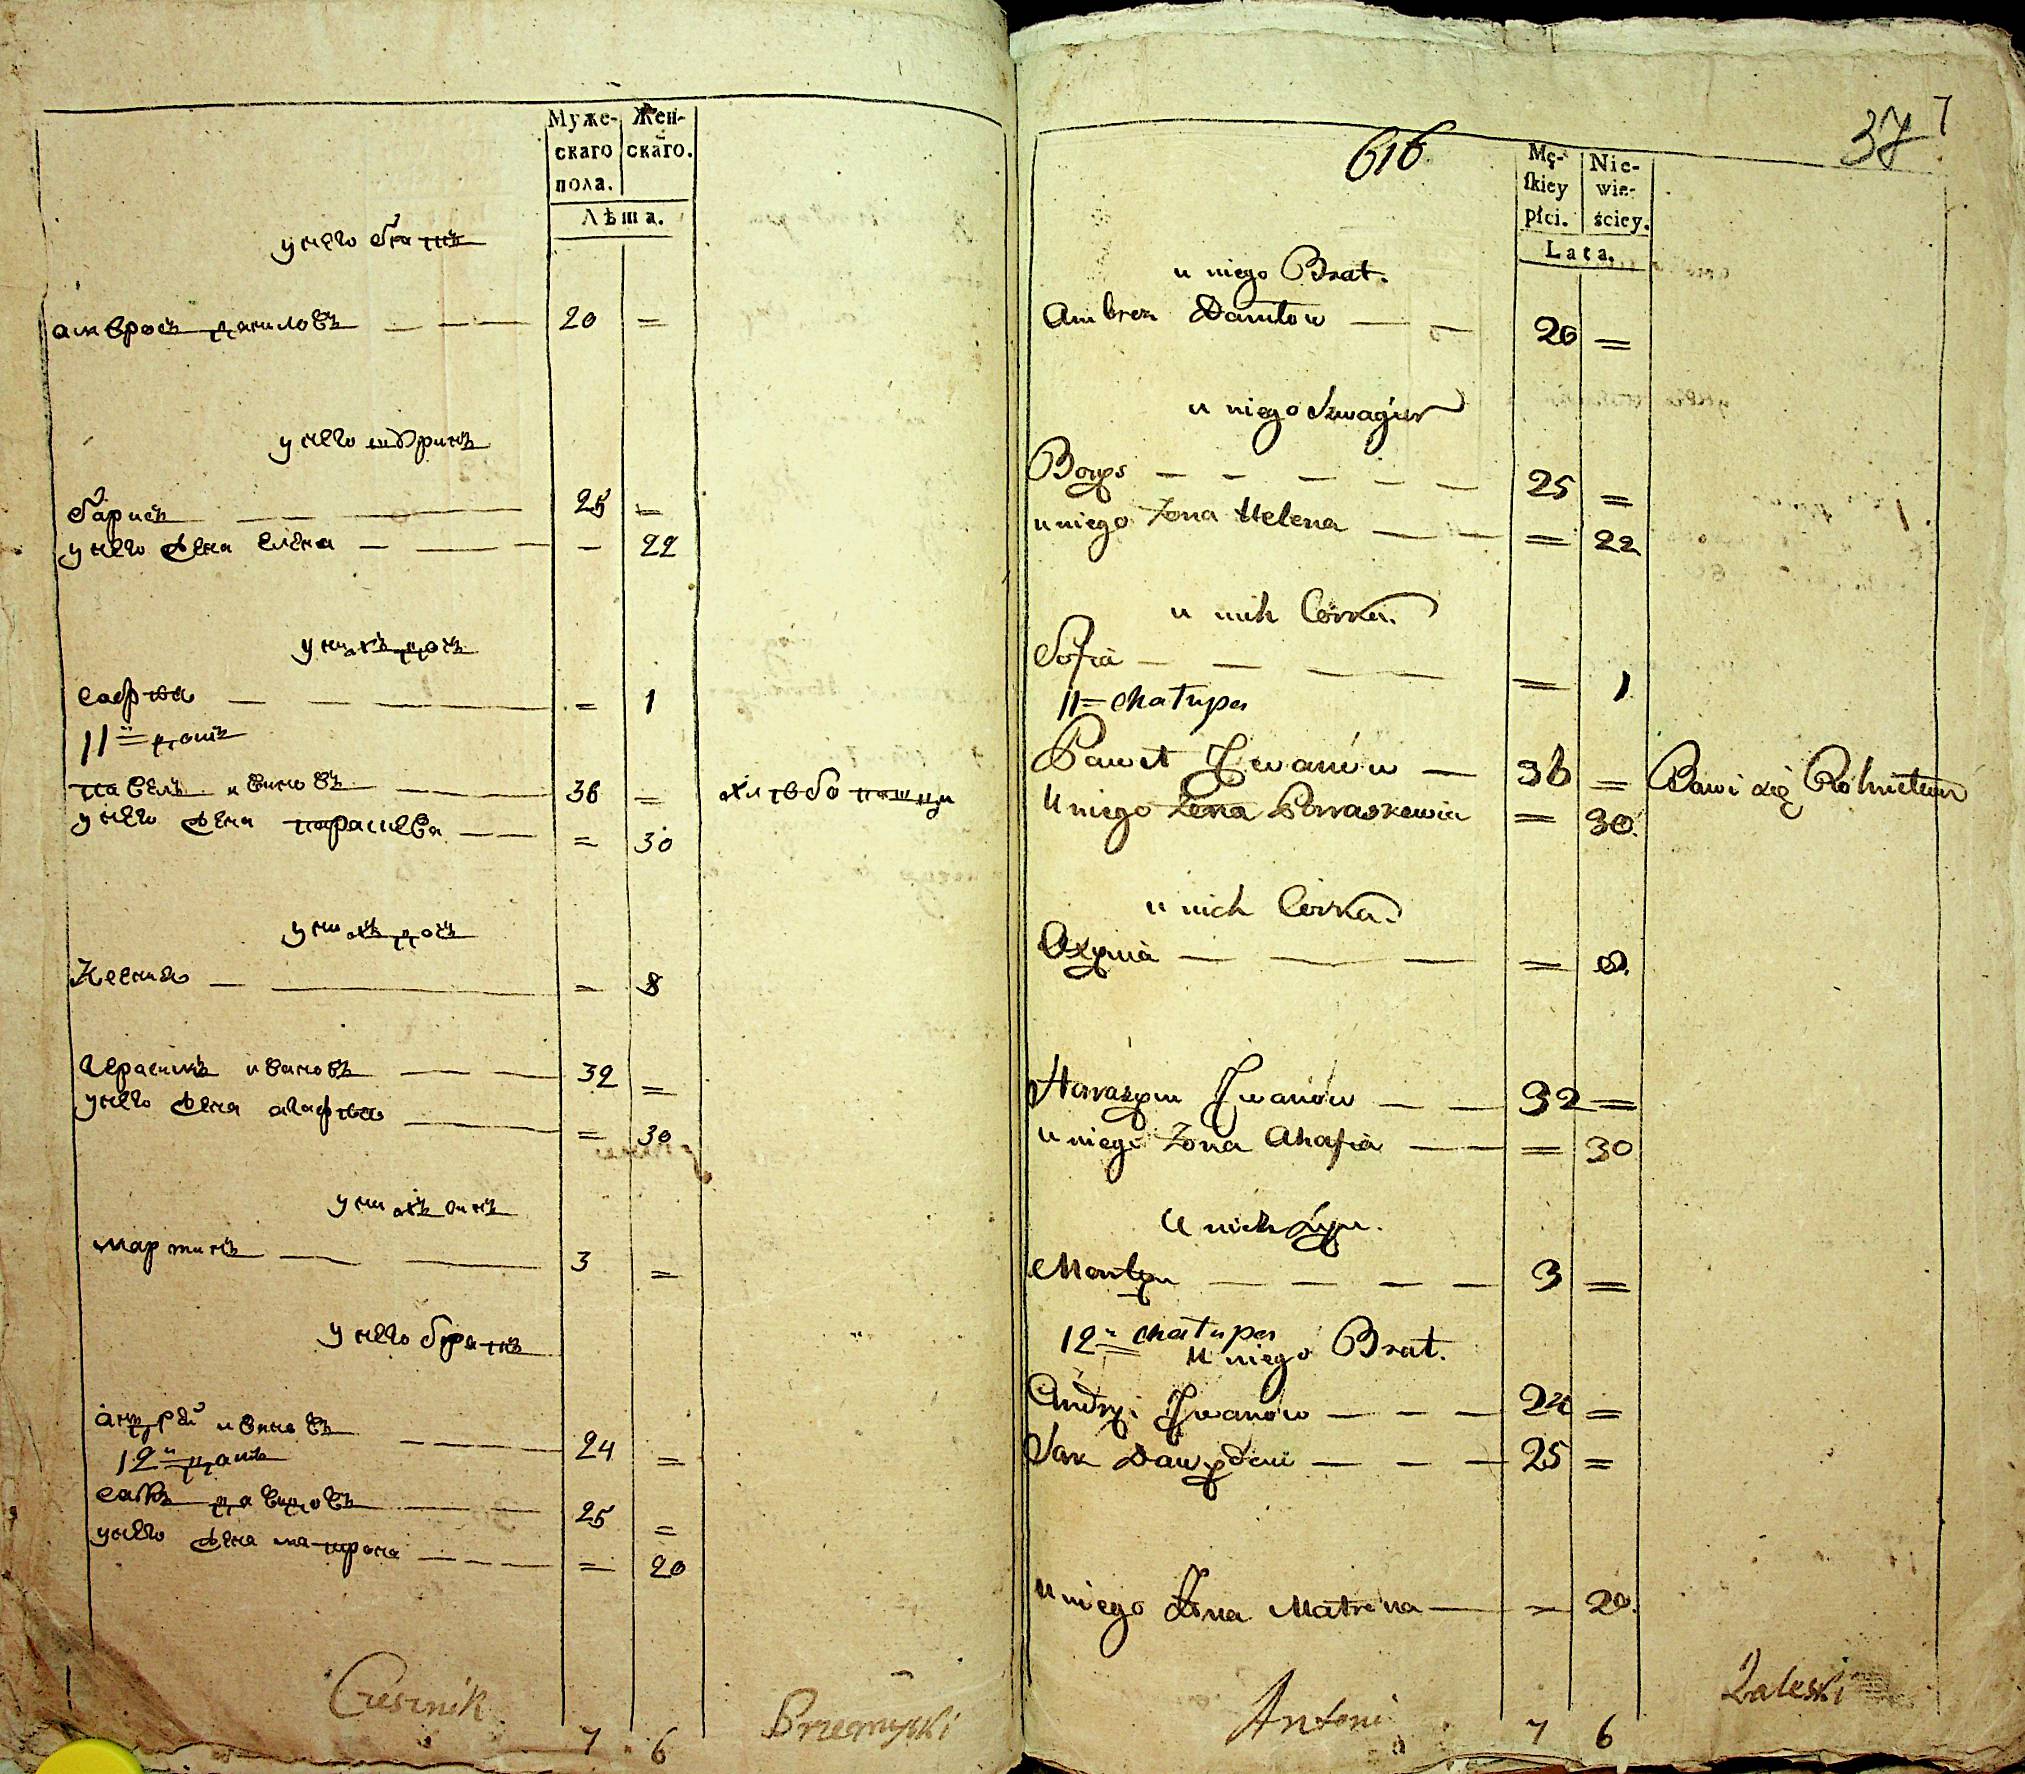 Муже- Жен-
скаго скаго.
пола.
Лѣта.
у него братъ
амвросъ даниловъ — — — 20 =
у него швагринъ
барисъ — — — 25 =
у него жена елена — — — — 22
у нихъ дочь
софия — — — = 1
11й домъ
павелъ ивановъ — — 36 = хлебо пашец
у него жена парасцева — — = 30
у нихъ дочь
Ксения — — = 8
Герасимъ ивановъ — — — 32 =
у него жена агафия — = 30
у нихъ сынъ
мартинъ — — 3 =
у него братъ
андрей ивановъ — — — 24 =
12й домъ
савъ давидовъ — — 25 =
у него жена матрона — — — = 20
Czesznik 7 6 Przemyski
616 37 7
Mę- Nie-
skiey wie-
płci. ściey.
Lata.
u niego Brat.
Ambroz Daniłow — — 20 =
u niego Szwagier
Borys — — — — — 25 =
u niego Zona Helena — — = 22
u nich Córka.
Sofia — — — — = 1
11= chałupa
Paweł Jwanów — 36 = Bawi się Rolnictwem
U niego Zona Parraskewia = 30.
u nich Córka.
Oxynia — — — = 8.
Harasym Jwanów — — 32 =
u niego Zona Ahafia — — = 30
U nich Syn.
Martyn — — — — 3 =
12= chałupa
U niego Brat.
Andryi Jwanów — — — 24 =
Sak Dawydow — — — 25 =
u niego Zona Matrona — = 20.
Antoni 7 6 Zaleski